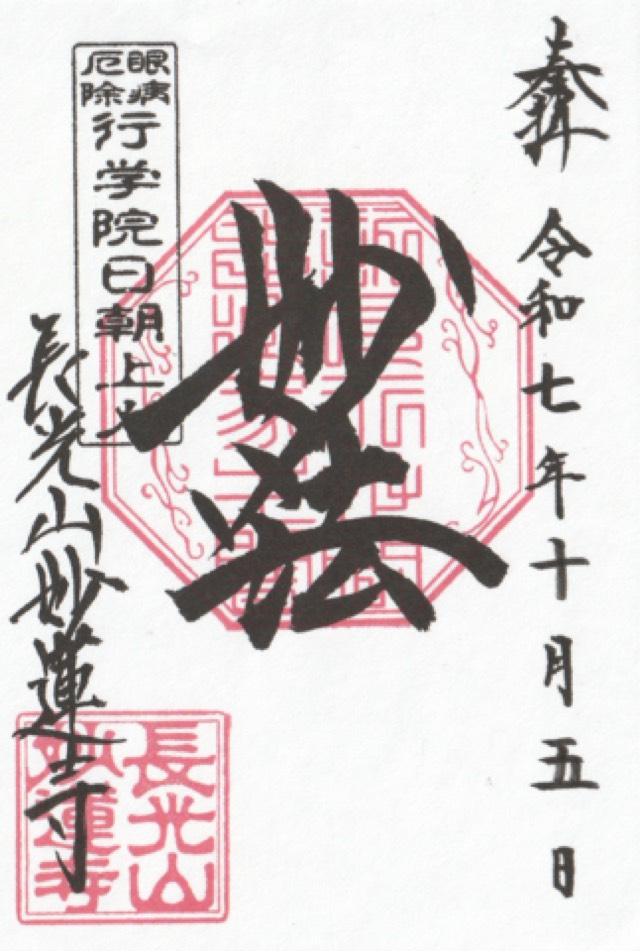 奉拝
令和七年十月五日
妙法
眼病
厄除
行学院日朝上人
長光山妙蓮寺
長光山
妙蓮寺